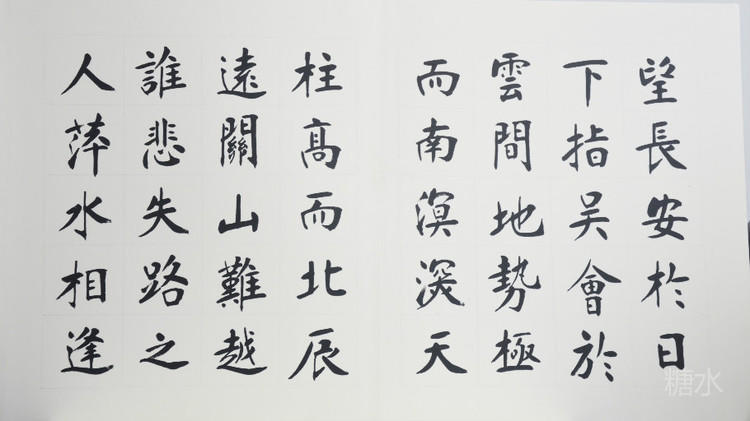 望長安於日
下指吴會於
雲間地勢極
而南溟深天
柱高而北辰
遠關山難越
誰悲失路之
人萍水相逢
糖水